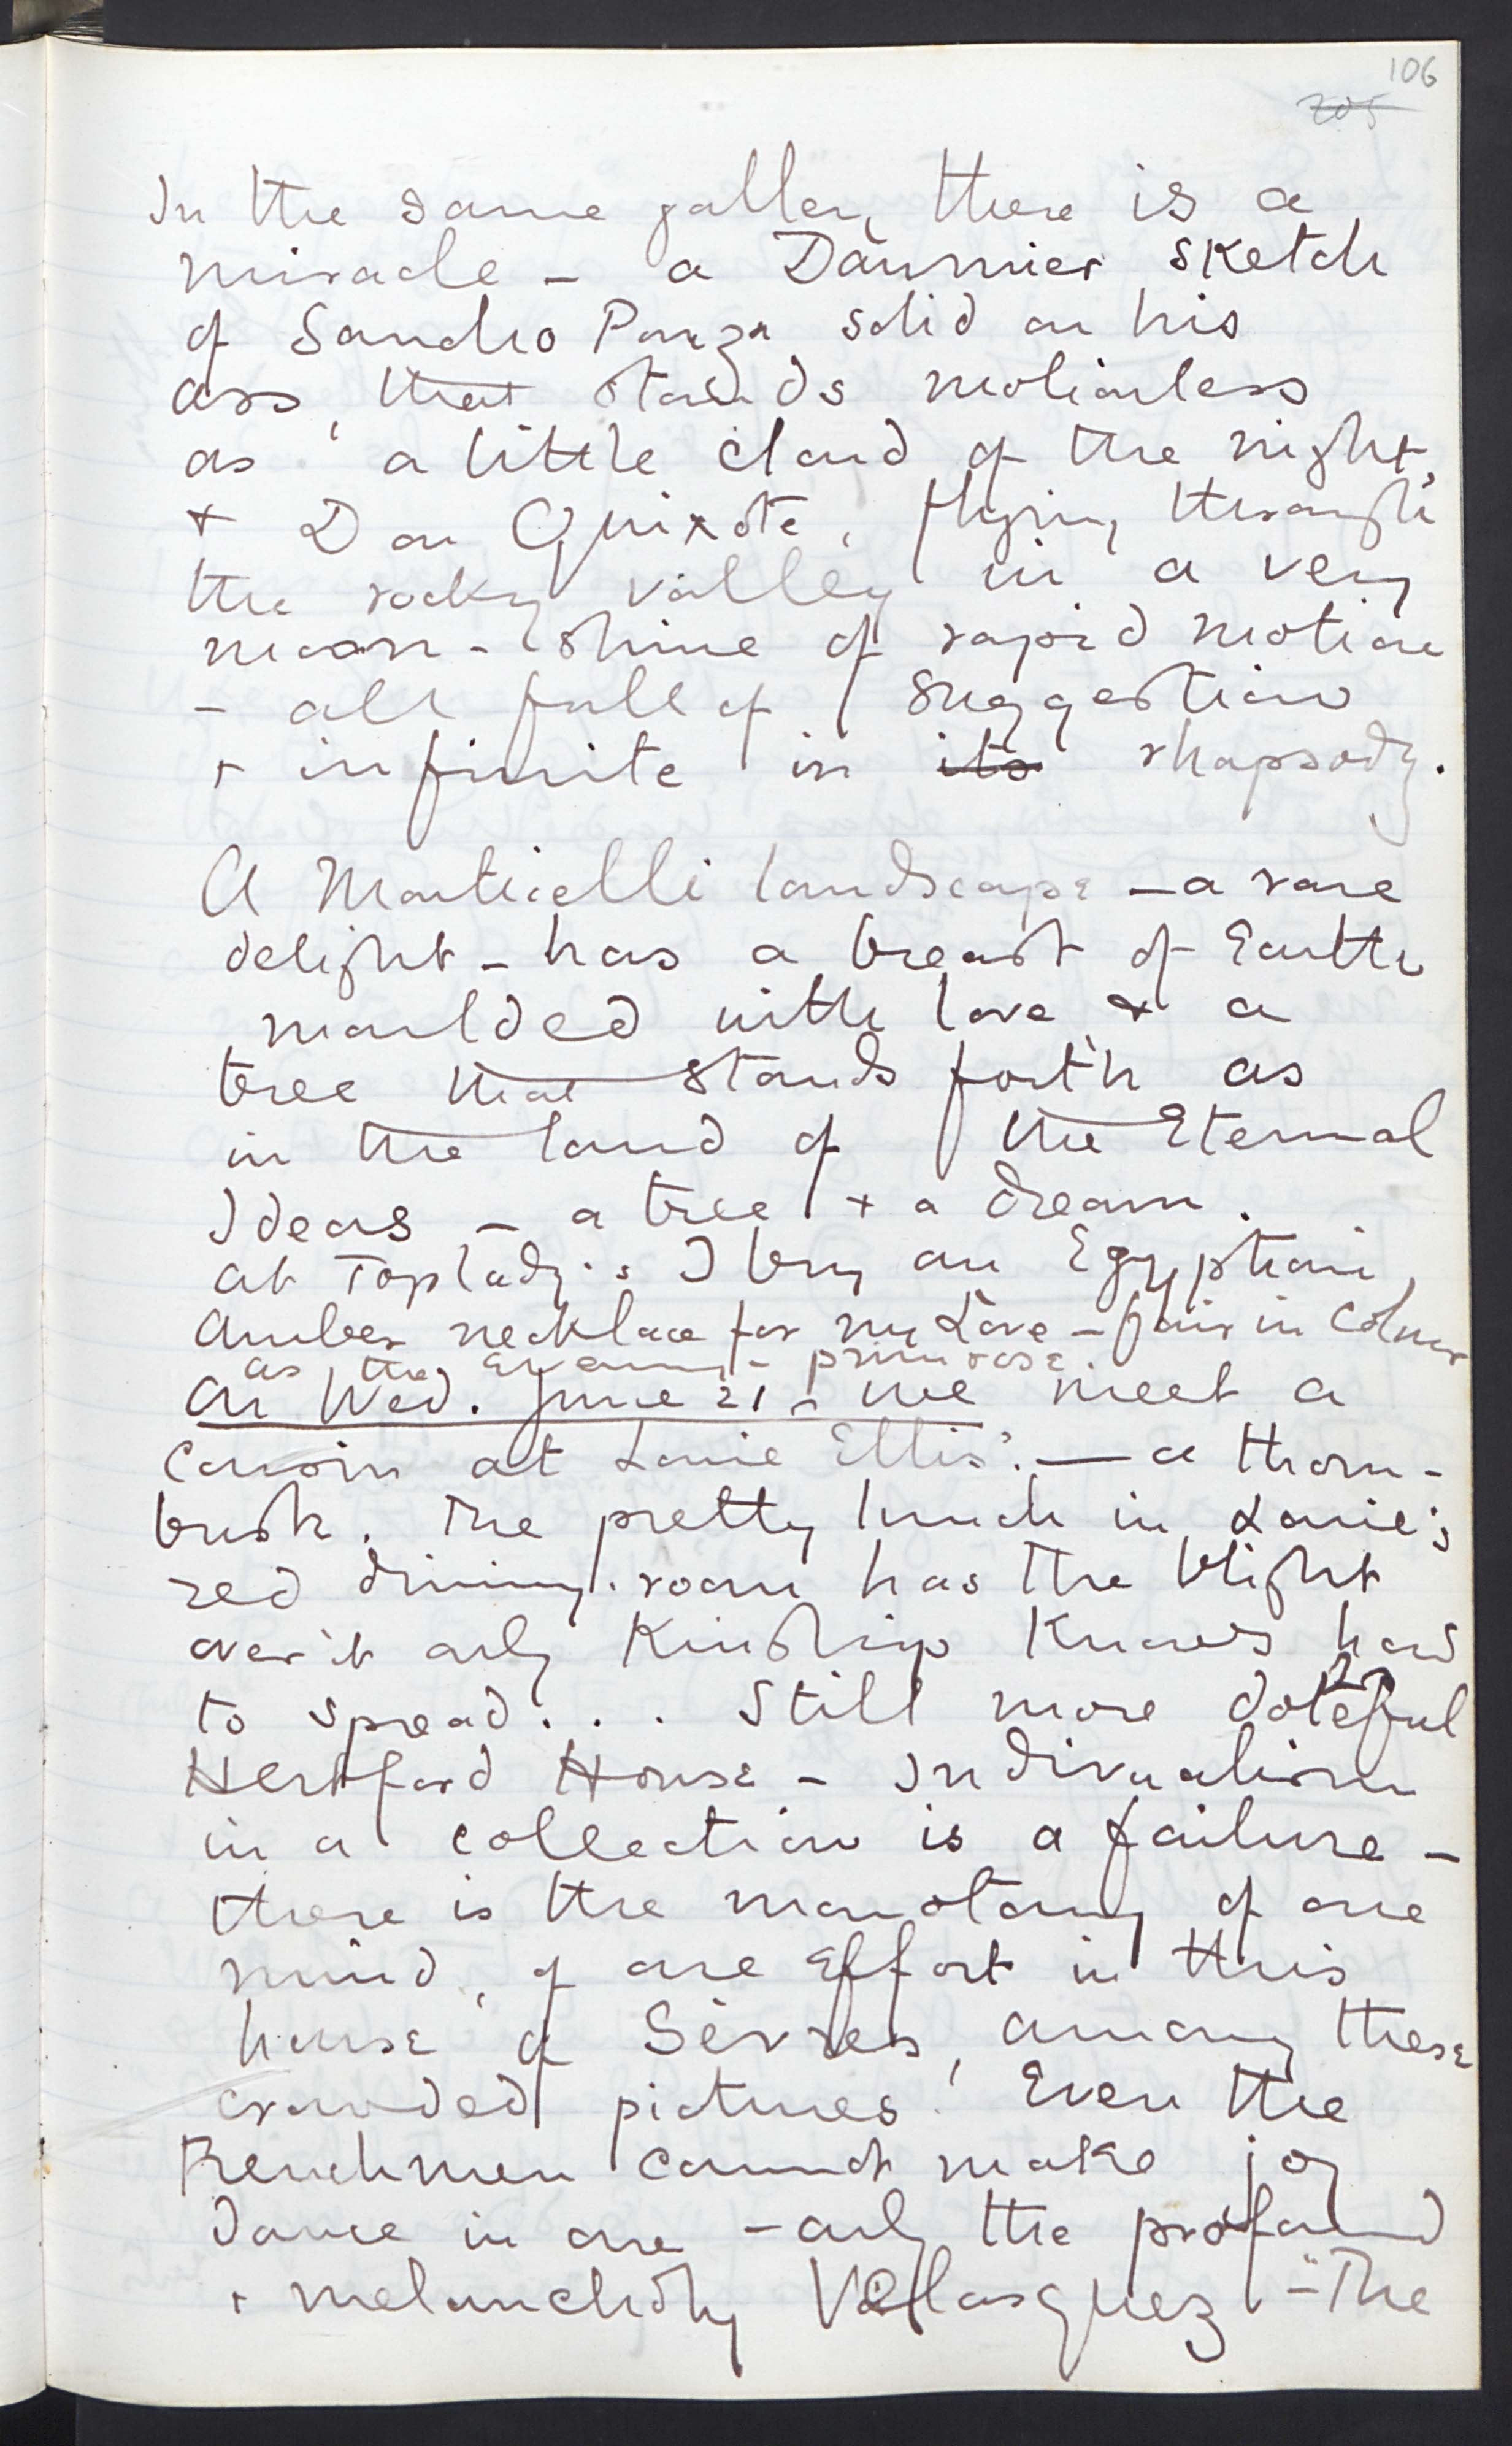 106
205
In the same gallery there is a
miracle – a Daumier sketch
of Sancho Panza solid on his
ass, that stands motionless
as a little cloud of the night,
+ Don Quixote, flying through
the rocky valley in a very
moon-shine of rapid motion
– all full of suggestion
+ infinite in its rhapsody.
A Monticelli landscape – a rare
delight – has a breast of Earth
moulded with love & a
tree that stands forth as
in the land of the Eternal
Ideas – a tree + a dream.
At Toplady's I buy an Egyptian
Amber necklace for my Love – fair in colour
as the Evening-primrose.
On Wed. June 21 – we meet a
Cousin at Louie Ellis' – a thorn-
bush. The pretty lunch in Louie's
red dining-room has the blight
over it only Kinship Knows how
to spread . . . Still more doleful
Hertford House – Indivualism
in a collection is a failure –
there is the monotony of one
mind, of one Effort in this
house of Sèvres, among these
crowded pictures! Even the
Frenchmen cannot make joy
dance in one – only the profound
+ melancholy Vélasquez – "The